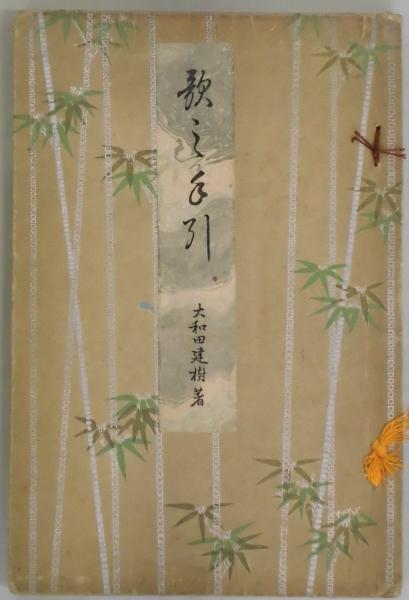 歌之手引
大和田建樹著